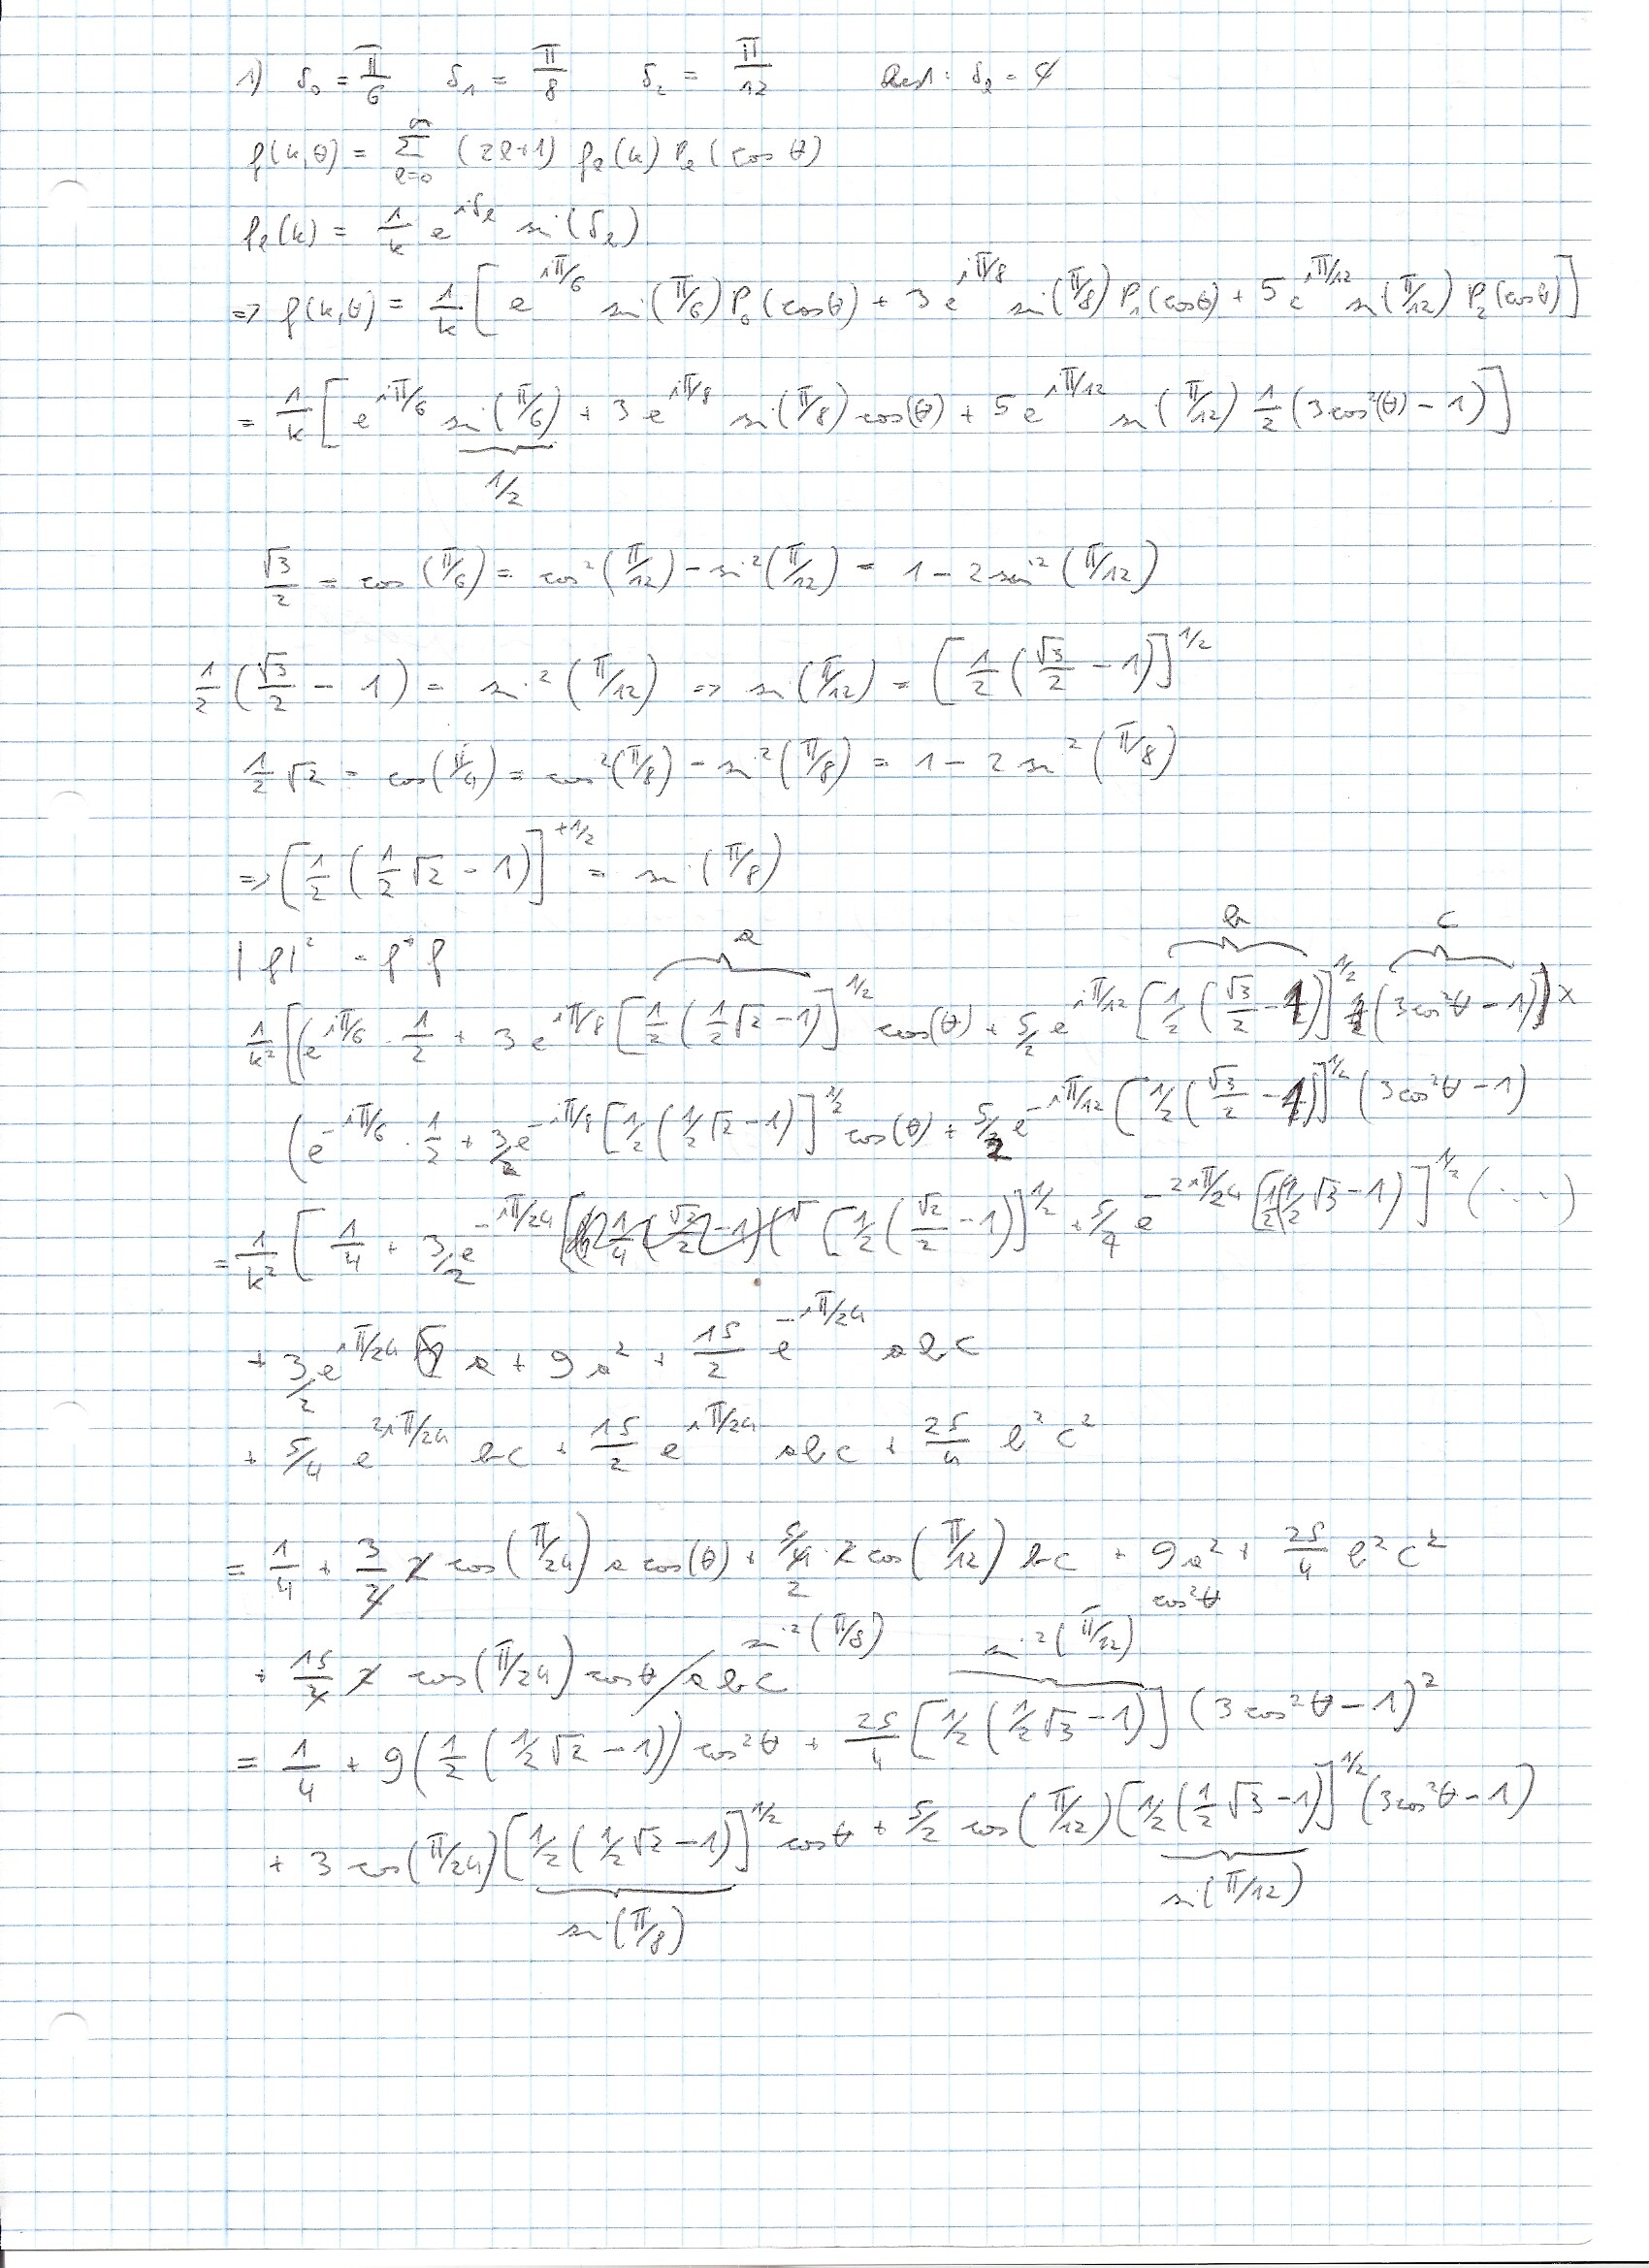 1) δ₀ = π/6 δ₁ = π/8 δ₂ = π/12 Rest: δₗ = 0
f(k,θ) = Σ_{l=0}^{∞} (2l+1) fₗ(k) Pₗ(cos θ)
fₗ(k) = 1/k e^{iδₗ} sin(δₗ)
=> f(k,θ) = 1/k [ e^{iπ/6} sin(π/6) P₀(cosθ) + 3 e^{iπ/8} sin(π/8) P₁(cosθ) + 5 e^{iπ/12} sin(π/12) P₂(cosθ) ]
= 1/k [ e^{iπ/6} sin(π/6) + 3 e^{iπ/8} sin(π/8) cos(θ) + 5 e^{iπ/12} sin(π/12) 1/2 (3cos²(θ) - 1) ]
1/2
√3/2 = cos(π/6) = cos²(π/12) - sin²(π/12) = 1 - 2 sin²(π/12)
1/2 (√3/2 - 1) = sin²(π/12) => sin(π/12) = [ 1/2 (√3/2 - 1) ]^{1/2}
1/2 √2 = cos(π/4) = cos²(π/8) - sin²(π/8) = 1 - 2 sin²(π/8)
=> [ 1/2 (1/2 √2 - 1) ]^{+1/2} = sin(π/8)
|f|² = f* f
a b c
1/k² [ (e^{iπ/6} · 1/2 + 3 e^{iπ/8} [ 1/2 (1/2 √2 - 1) ]^{1/2} cos(θ) + 5/2 e^{iπ/12} [ 1/2 (√3/2 - 1) ]^{1/2} (3cos²θ - 1) ) ×
( e^{-iπ/6} · 1/2 + 3 e^{-iπ/8} [ 1/2 (1/2 √2 - 1) ]^{1/2} cos(θ) + 5/2 e^{-iπ/12} [ 1/2 (√3/2 - 1) ]^{1/2} (3cos²θ - 1)
= 1/k² [ 1/4 + 3/2 e^{-iπ/24} [ 1/2 (√2/2 - 1) ]^{1/2} + 5/4 e^{-2iπ/24} [ 1/2 (1/2 √3 - 1) ]^{1/2} (...)
+ 3/2 e^{iπ/24} a + 9 a² + 15/2 e^{-iπ/24} abc
+ 5/4 e^{2iπ/24} bc + 15/2 e^{iπ/24} abc + 25/4 b² c²
= 1/4 + 3/2 2 cos(π/24) a cos(θ) + 5/4 · 2 cos(π/12) bc + 9a² + 25/4 b² c²
2 cos²θ
+ 15/2 2 cos(π/24) cosθ abc sin²(π/8) sin²(π/12)
= 1/4 + 9 (1/2 (1/2 √2 - 1)) cos²θ + 25/4 [ 1/2 (1/2 √3 - 1) ] (3cos²θ - 1)²
+ 3 cos(π/24) [ 1/2 (1/2 √2 - 1) ]^{1/2} cosθ + 5/2 cos(π/12) [ 1/2 (1/2 √3 - 1) ]^{1/2} (3cos²θ - 1)
sin(π/8) sin(π/12)